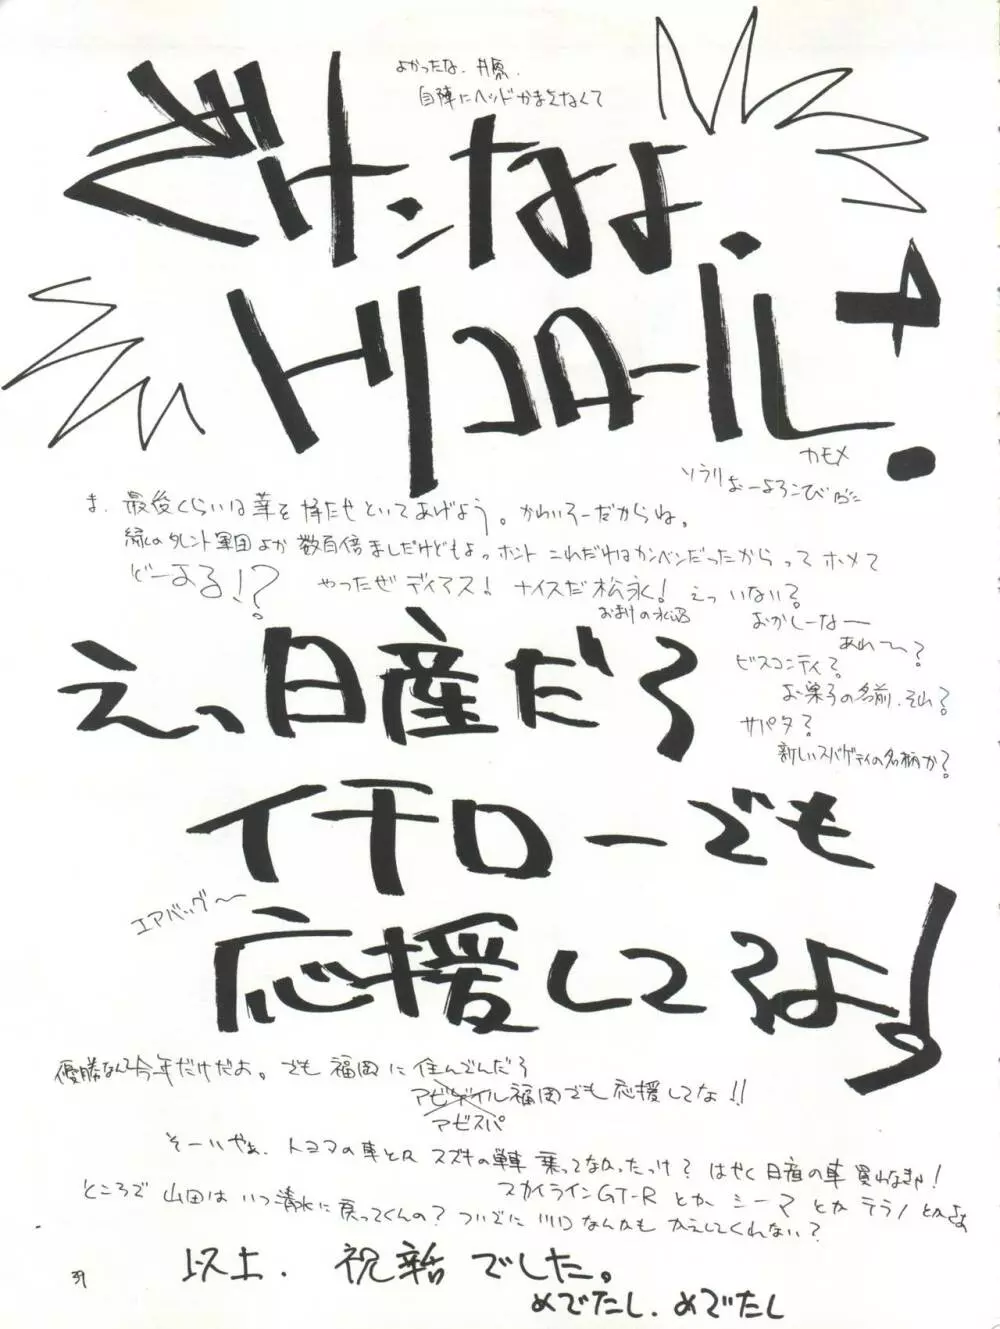 よかったな、井原、
自陣にヘッドかまえなくて
ざけんなよ、
トリコロール!
カモメ
ソラリよーよろこび
ま、最後くらいは華を持たせといてあげよう。かわいそーだからね。
緑のタレント軍団よか数百倍ましだけどもよ。ホント これだけはカンベンだったからってホメて
どーする!?
やったぜ ディアス! ナイスだ松永! えっ いない?
おまけの水沼
おかしーなー
あれ〜?
ビスコンティ?
お菓子の名前、それ?
サパタ?
新しいスパゲティの名柄か?
えっ、日産だろ
イチローでも
エアバッグ〜
応援してろよ!
優勝なんて今年だけだよ。でも 福岡に 住んでんだろ
福岡でも応援してな!!
アビスパ
そーいやぁ、トヨタの車とか スズキの車 乗ってなかったっけ? はやく日産の車 買わなきゃ!
スカイラインGT-R とか シーマ とか テラノとかよぉ
ところで 山田は いつ清水に戻ってくんの? ついでに 川口なんかも かえしてくれない?
以上、祝辞でした。
めでたし、めでたし
39